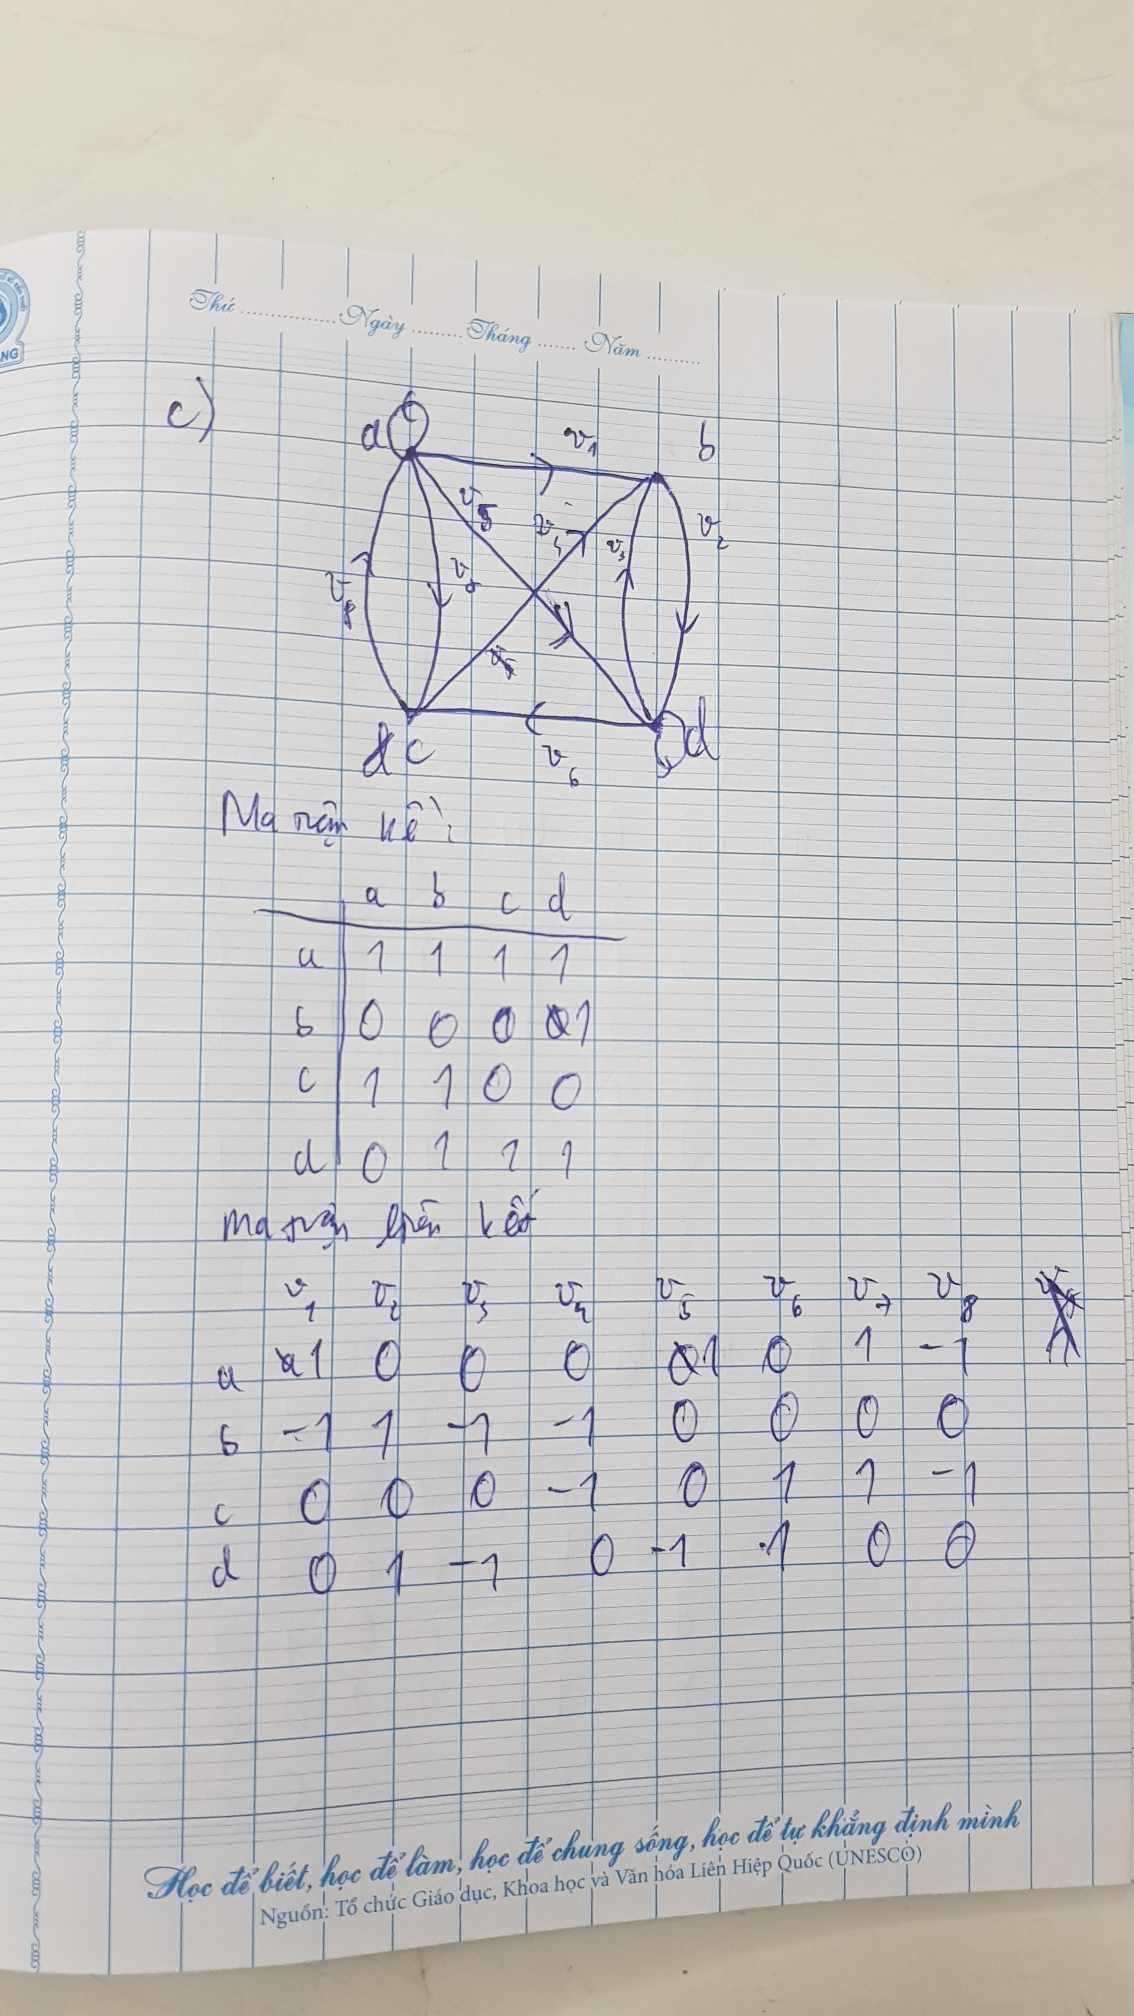 NG
Thứ ............... Ngày ......... Tháng ....... Năm ..........
c)
a v1 b
v5 v4 v3 v2
v8 v7
c d
v6
Ma trận kề:
a b c d
a 1 1 1 1
b 0 0 0 1
c 1 1 0 0
d 0 1 1 1
Ma trận liên kết
v1 v2 v3 v4 v5 v6 v7 v8
a 1 0 0 0 1 0 1 -1
b -1 1 -1 -1 0 0 0 0
c 0 0 0 -1 0 1 1 -1
d 0 1 -1 0 -1 -1 0 0
Học để biết, học để làm, học để chung sống, học để tự khẳng định mình
Nguồn: Tổ chức Giáo dục, Khoa học và Văn hóa Liên Hiệp Quốc (UNESCO)